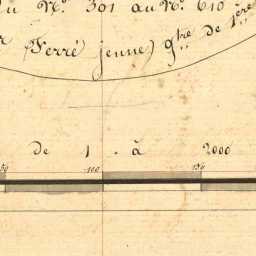 du N° 301 au N° 610
(Ferré jeune) gtre de 1ère
de 1 à 2000
50 100 150